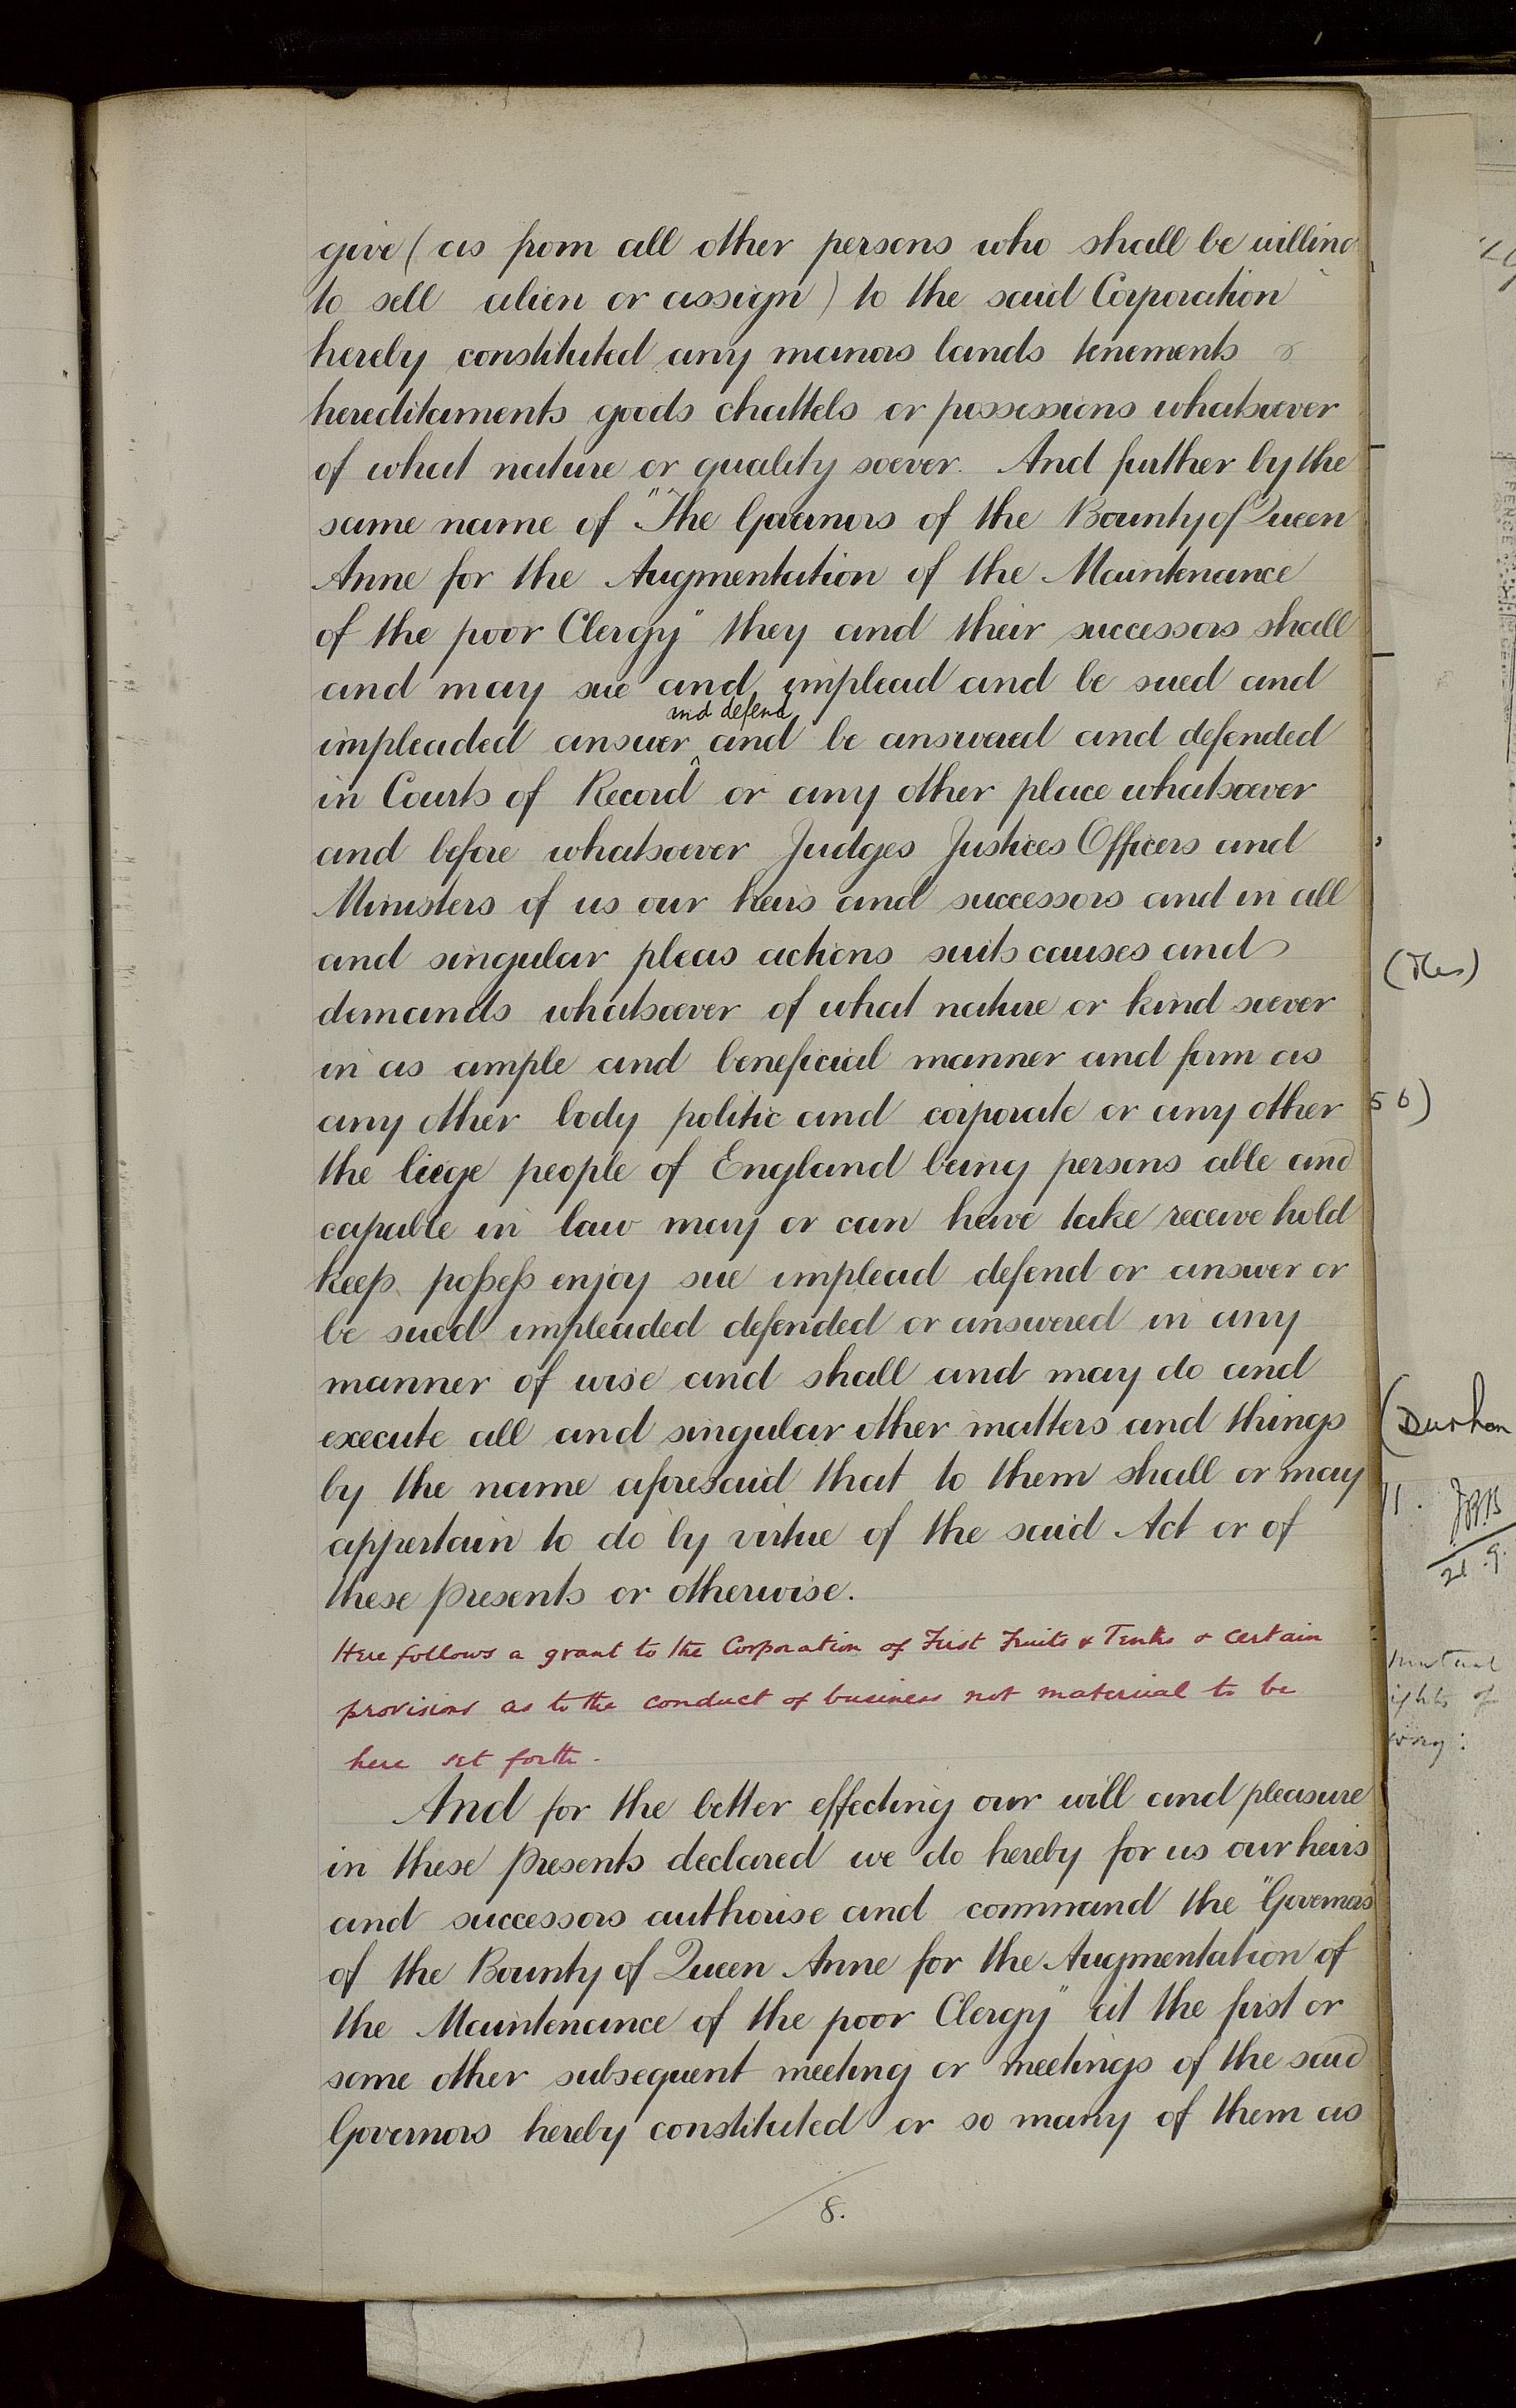 give (as from all other persons who shall be willing
to sell alien or assign) to the said Corporation
hereby constituted any manors lands tenements &
hereditaments goods chattels or possessions whatsoever
of what nature or quality soever. And further by the
same name of "The Governors of the Bounty of Queen
Anne for the Augmentation of the Maintenance
of the poor Clergy" they and their successors shall
and may sue and implead and be sued and
and defend
impleaded answer ^ and be answered and defended
in Courts of Record or any other place whatsoever
and before whatsoever Judges Justices Officers and
Ministers of us our heirs and successors and in all
and singular pleas actions suits causes and
demands whatsoever of what nature or kind soever
in as ample and beneficial manner and form as
any other body politic and corporate or any other
the liege people of England being persons able and
capable in law may or can have take receive hold
keep possess enjoy sue implead defend or answer or
be sued impleaded defended or answered in any
manner of wise and shall and may do and
execute all and singular other matters and things
by the name aforesaid that to them shall or may
appertain to do by virtue of the said Act or of
these presents or otherwise.
Here follows a grant to the Corporation of First Fruits & Tenths & certain
provisions as to the conduct of business not material to be
here set forth.
And for the better effecting our will and pleasure
in these presents declared we do hereby for us our heirs
and successors authorise and command the "Governors
of the Bounty of Queen Anne for the Augmentation of
the Maintenance of the poor Clergy" at the first or
some other subsequent meeting or meetings of the said
Governors hereby constituted or so many of them as
8.
56)
(Durham
11.